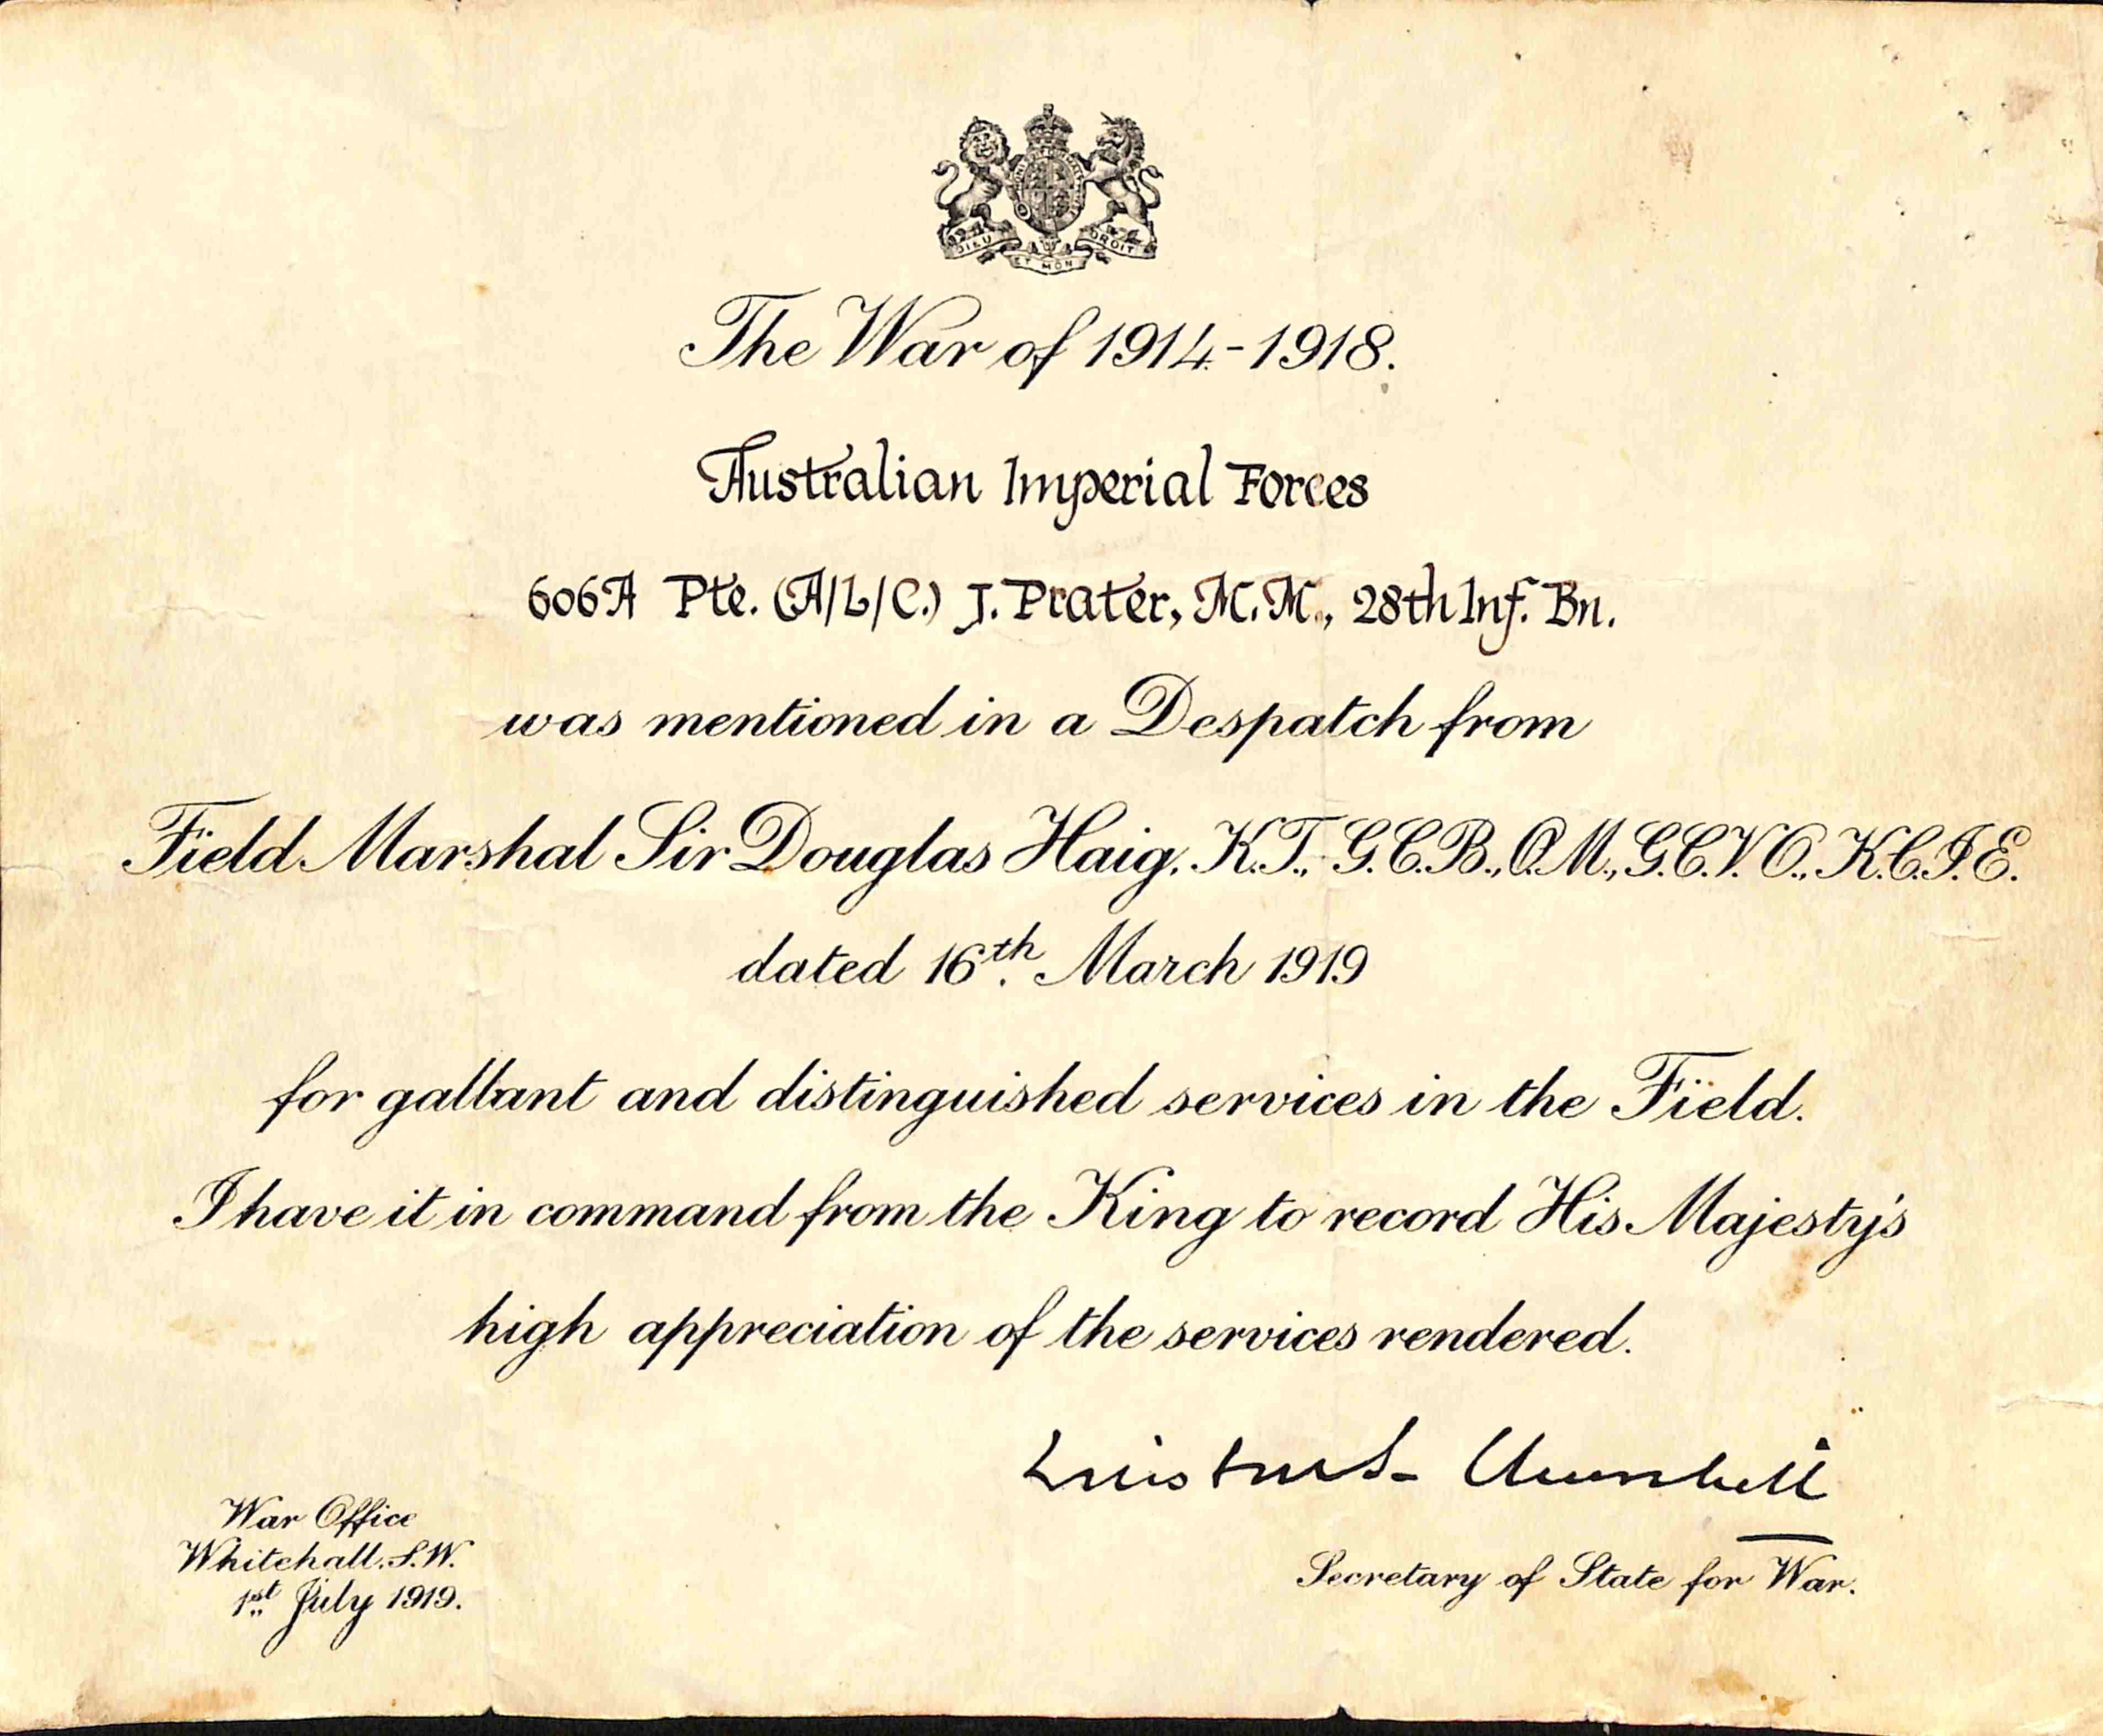 DIEU ET MON DROIT
The War of 1914-1918.
Australian Imperial Forces
606A Pte. (A/L/C.) J. Prater, M.M., 28th Inf. Bn.
was mentioned in a Despatch from
Field Marshal Sir Douglas Haig, K.T., G.C.B., O.M., G.C.V.O., K.C.I.E.
dated 16th March 1919
for gallant and distinguished services in the Field.
I have it in command from the King to record His Majesty's
high appreciation of the services rendered.
Winston S. Churchill
Secretary of State for War.
War Office
Whitehall. S.W.
1st July 1919.